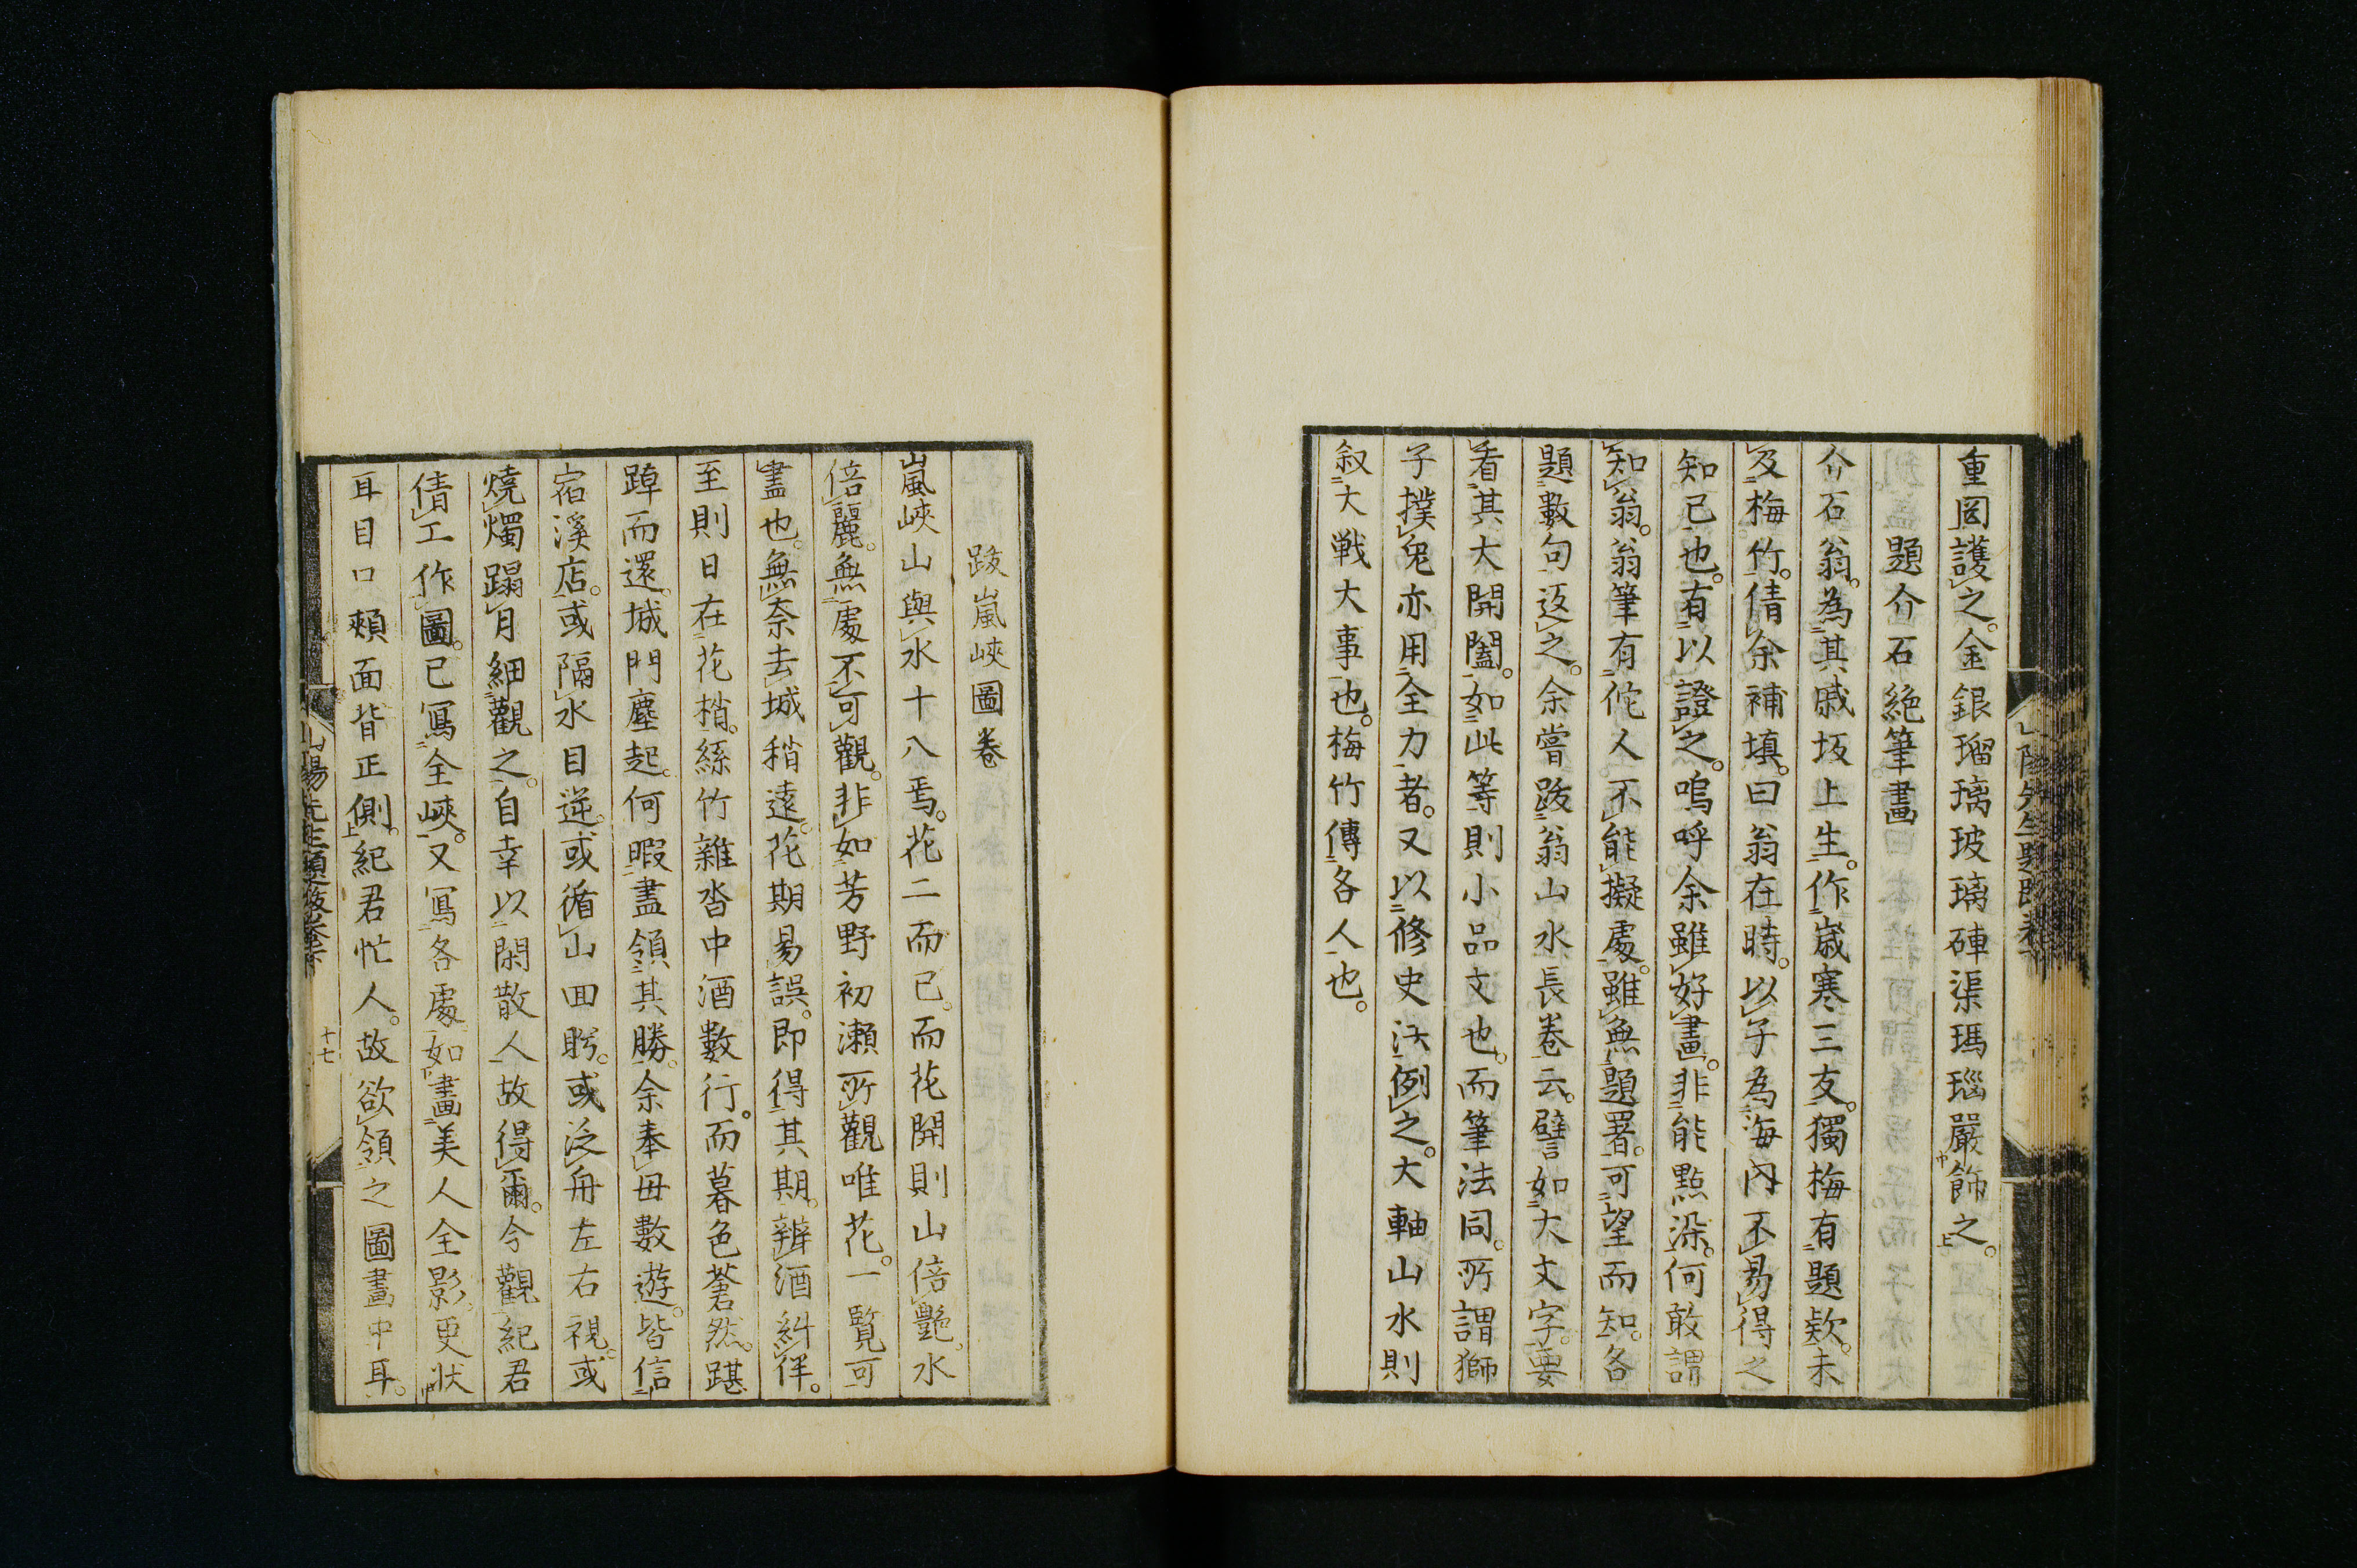 重図護之。金銀瑠璃玻璃硨渠瑪瑙嚴飾之。
題介石絶筆畫
介石翁。為其戚坂上生。作嵗寒三友。獨梅有題欵。未
及梅竹。倩余補填。曰翁在時。以子為海內不易得之
知己也。有以證之。嗚呼余雖好畫。非能點染。何敢謂
知翁。翁筆有佗人不能擬處。雖無題署。可望而知。各
題數句返之。余嘗跋翁山水長卷云。譬如大文字。要
看其大開闔。如此等則小品文也。而筆法同。所謂獅
子撲兔亦用全力者。又以修史法例之。大軸山水則
叙大戦大事也。梅竹傳各人也。
跋嵐峽圖卷
嵐峽山與水十八焉。花二而已。而花開則山倍艷。水
倍麗。無處不可觀。非如芳野初瀨所觀唯花。一覧可
盡也。無奈去城稍遠。花期易誤。即得其期。辨酒糾伴。
至則日在花梢。絲竹雜沓中酒數行。而暮色蒼然。踸
踔而還。城門塵起。何暇盡領其勝。余奉母數遊。皆信
宿溪店。或隔水目逆。或循山回眄。或泛舟左右視。或
燒燭蹋月細觀之。自幸以閑散人故得爾。今觀紀君
倩工作圖。已寫全峽。又寫各處如畫美人全影。更狀
耳目口頰面背正側。紀君忙人。故欲領之圖畫中耳。
山陽先生題跋卷下
十七